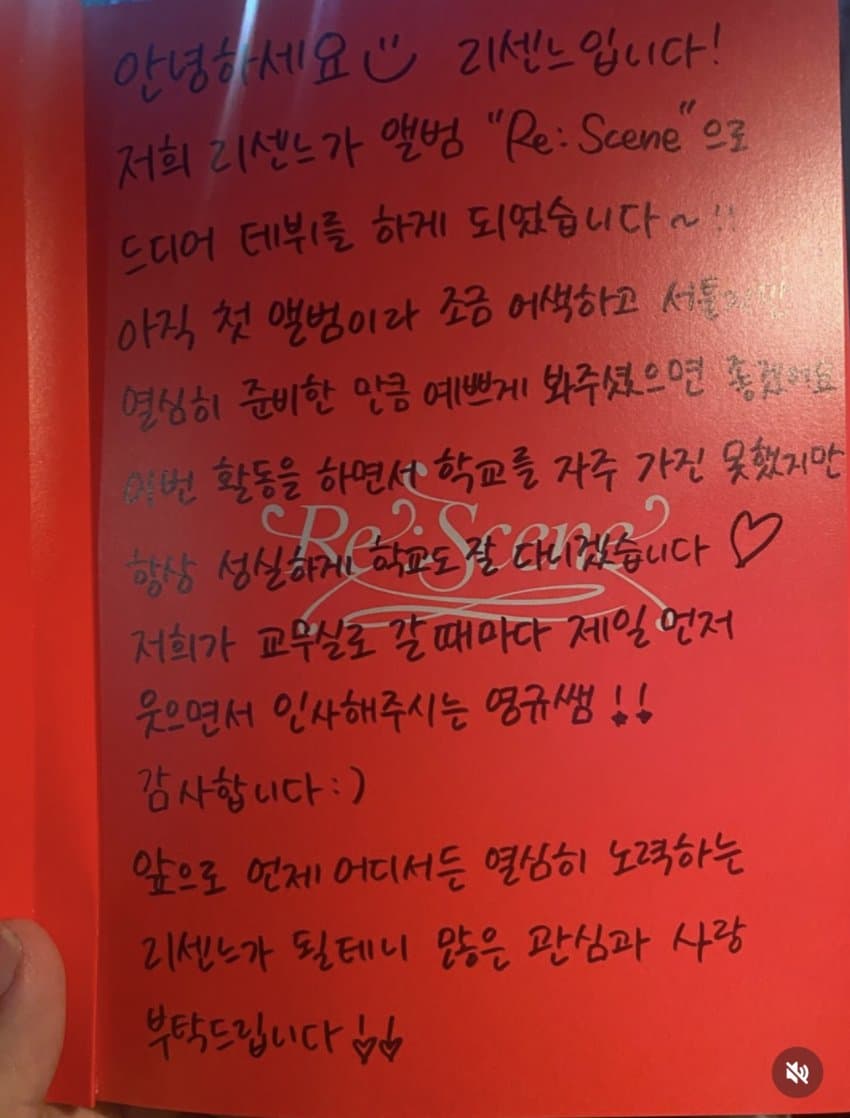 안녕하세요 리센느입니다!
저희 리센느가 앨범 "Re:Scene"으로
드디어 데뷔를 하게 되었습니다~!!
아직 첫 앨범이라 조금 어색하고 서툴지만
열심히 준비한 만큼 예쁘게 봐주셨으면 좋겠어요
이번 활동을 하면서 학교를 자주 가진 못했지만
Re:Scene
항상 성실하게 학교도 잘 다니겠습니다 ♡
저희가 교무실로 갈 때마다 제일 먼저
웃으면서 인사해주시는 영규쌤!!
감사합니다:)
앞으로 언제 어디서든 열심히 노력하는
리센느가 될테니 많은 관심과 사랑
부탁드립니다!!